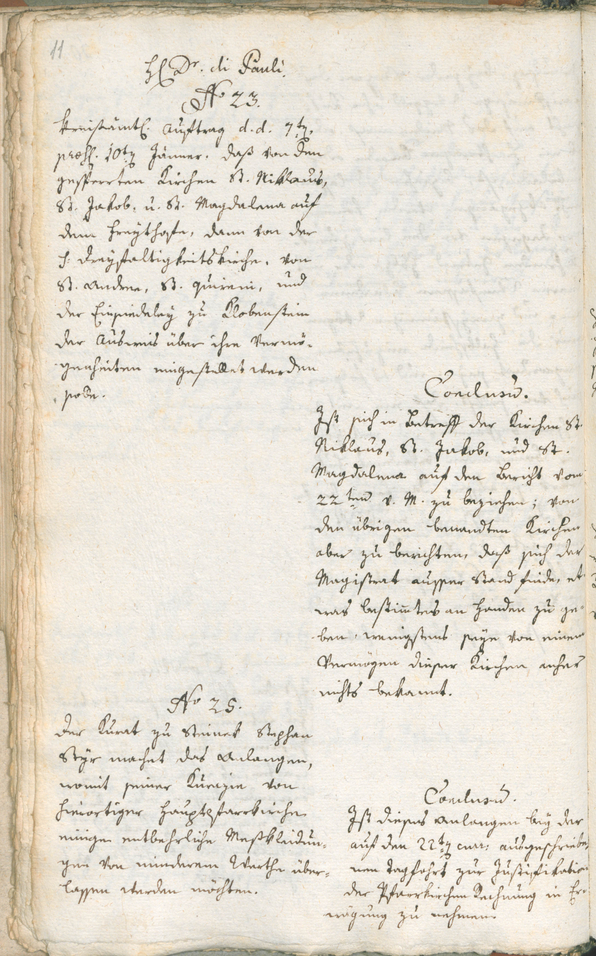 11
H. Dr. di Pauli.
No 23.
Kreisämtl. Auftrag d. d. 7ten,
präs. 10ten Jänner. daß von den
gesperrten Kirchen St. Niklaus,
St. Jakob, u. St. Magdalena auf
dem Freythofe, dann von der
h. Dreyfaltigkeitskirche, von
St. Andrea, St. Quirein, und
der Einsiedeley zu Klobenstein
der Ausweis über ihre Vermö-
genheiten eingestellet werden
solle.
Conclusum.
Ist sich in Betreff der Kirchen St.
Niklaus, St. Jakob, und St.
Magdalena auf den Bericht vom
22ten v. M. zu beziehen; von
den übrigen benandten Kirchen
aber zu berichten, daß sich der
Magistrat ausser Stand finde, et-
was bestimtes an Handen zu ge-
ben, wenigstens seye von einem
Vermögen dieser Kirchen anher
nichts bekannt.
No 25.
Der Kurat zu Steinek Stephan
Styr machet das Anlangen,
womit seiner Kurazie von
hierortiger Hauptpfarrkirche
einige entbehrliche Meßkleidun-
gen von minderem Werthe über-
lassen werden möchten.
Conclusum.
Ist dieses Anlangen bey der
auf den 22ten curr: ausgeschriebe-
nen Tagfahrt zur Justifikation
der Pfarrkirchen Rechnung in Er-
wägung zu nehmen.